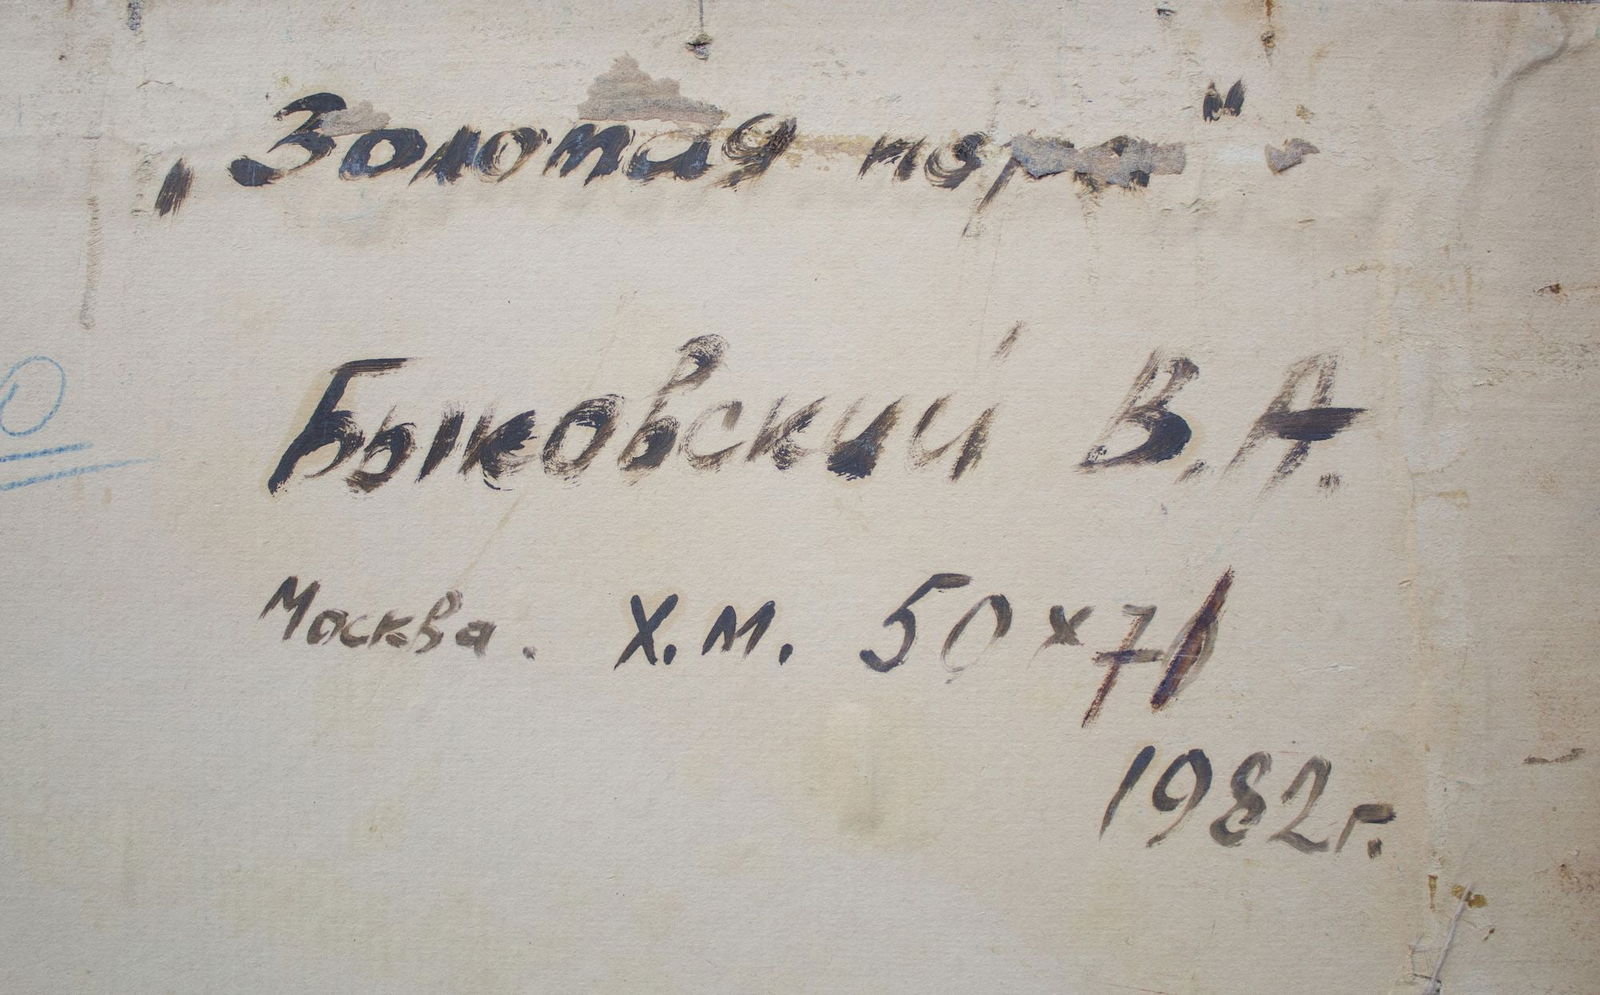 „Золотая пора"
Быковский В.А.
Москва. Х.М. 50×71
1982г.